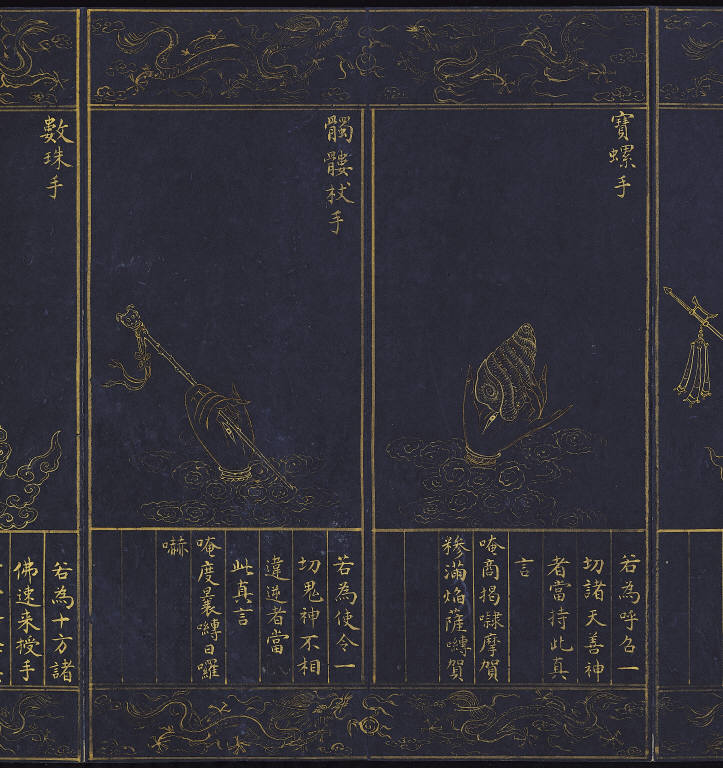 寶螺手
若為呼召一
切諸天善神
者當持此真
言
唵商揭㘑摩賀
糝滿焰薩嚩賀
髑髏杖手
若為使令一
切鬼神不相
違逆者當
此真言
唵度曩嚩日囉
嚇
數珠手
若為十方諸
佛速來授手